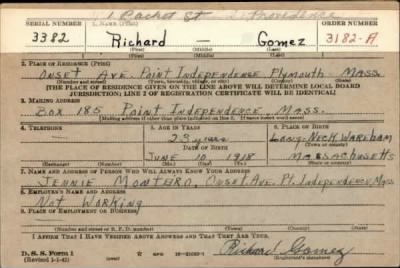 1 Packet St Providence
SERIAL NUMBER 1. NAME (Print) ORDER NUMBER
3382 Richard — Gomez 3182-A
(First) (Middle) (Last)
2. PLACE OF RESIDENCE (Print)
Onset Ave. Point Independence Plymouth Mass.
(Number and street) (Town, township, village, or city) (County) (State)
[THE PLACE OF RESIDENCE GIVEN ON THE LINE ABOVE WILL DETERMINE LOCAL BOARD
JURISDICTION; LINE 2 OF REGISTRATION CERTIFICATE WILL BE IDENTICAL]
3. MAILING ADDRESS
Box 185 Point Independence, Mass.
[Mailing address if other than place indicated on line 2. If same insert word same]
4. TELEPHONE 5. AGE IN YEARS 6. PLACE OF BIRTH
23 years Long-Neck Wareham
DATE OF BIRTH (Town or county)
June 10 1918 Massachusetts
(Exchange) (Number) (Mo.) (Day) (Yr.) (State or country)
7. NAME AND ADDRESS OF PERSON WHO WILL ALWAYS KNOW YOUR ADDRESS
Jennie Monteiro, Onset Ave. Pt. Independence, Mass
8. EMPLOYER'S NAME AND ADDRESS
Not Working
9. PLACE OF EMPLOYMENT OR BUSINESS
(Number and street or R. F. D. number) (Town) (County) (State)
I AFFIRM THAT I HAVE VERIFIED ABOVE ANSWERS AND THAT THEY ARE TRUE.
D. S. S. Form 1 Richard Gomez
(Registrant's signature)